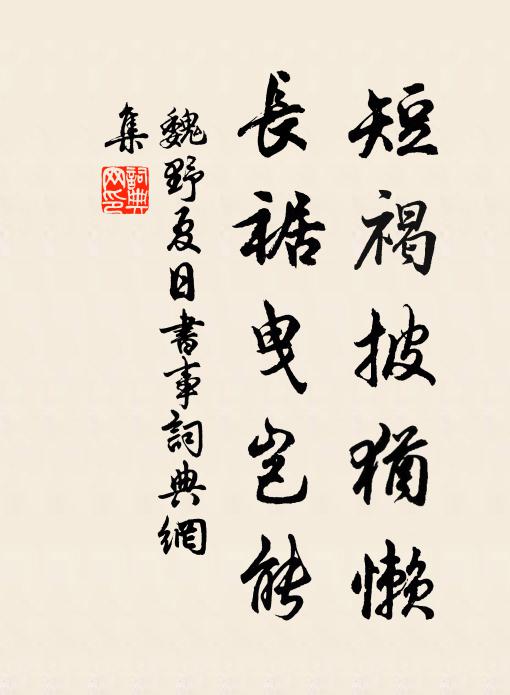 短褐披猶懶
長裾曳豈能
魏野夏日書事詞典網
集
詞典
网印